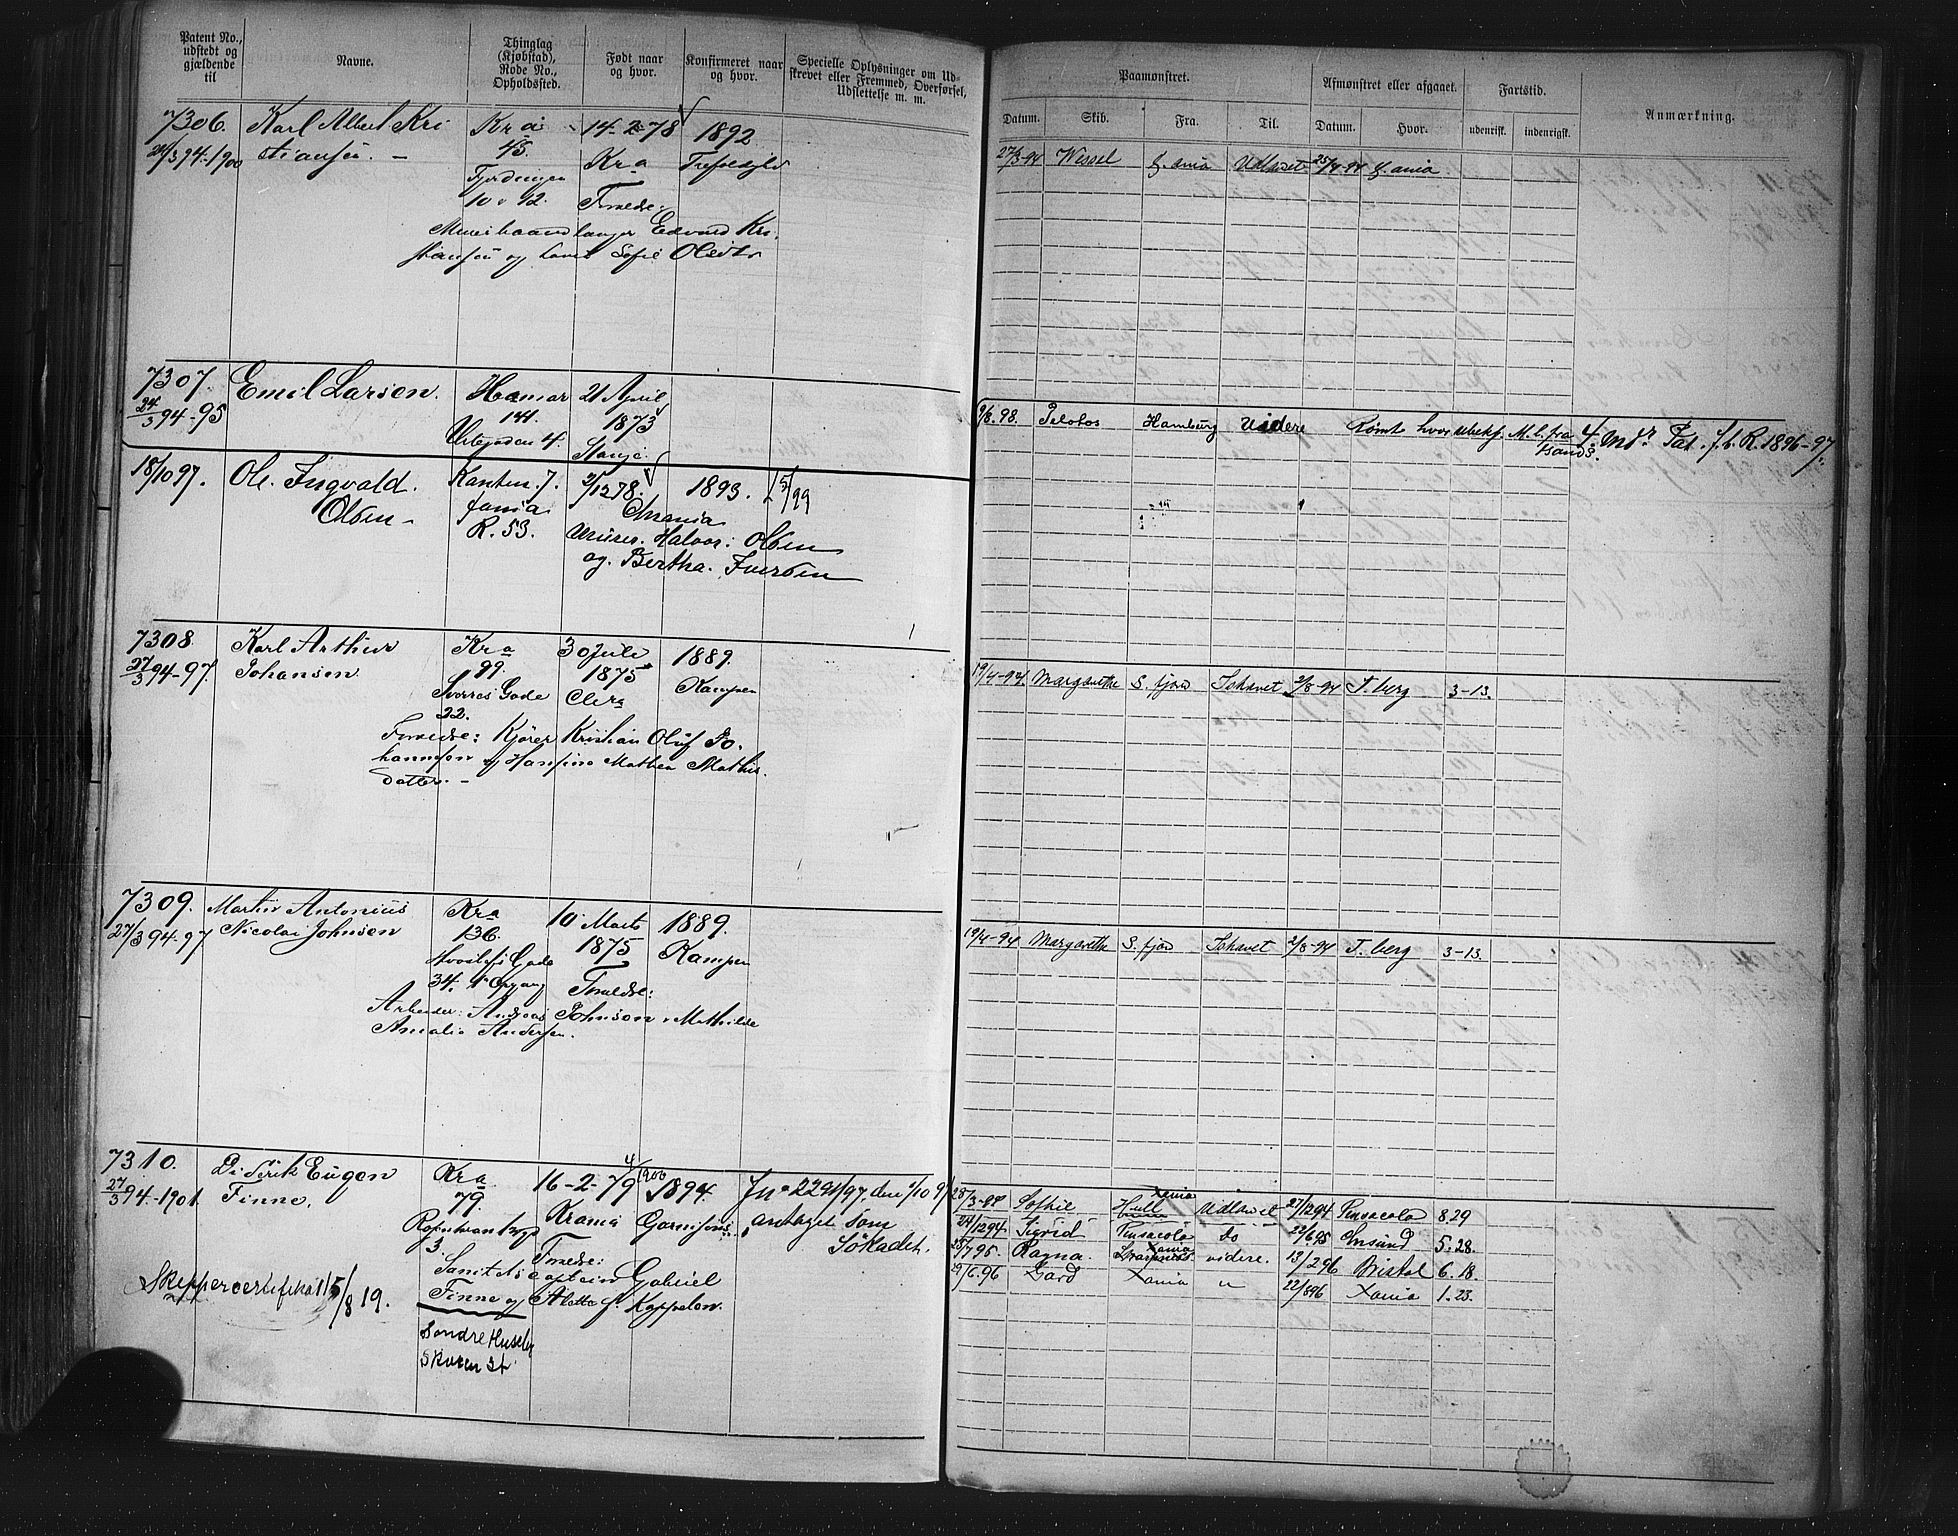 Patent No.,
udstedt og
gjældende
til
Navne.
Thinglag
(Kjøbstad),
Rode No.,
Opholdssted.
Født naar
og hvor.
Konfirmeret naar
og hvor.
Specielle Oplysninger om Ud-
skrevet eller Fremmed, Overførsel,
Udslettelse m. m.
Paamønstret.
Afmønstret eller afgaaet.
Fartstid.
Anmærkning.
Datum.
Skib.
Fra.
Til.
Datum.
Hvor.
udenrisk.
indenrigsk.
7306. Karl Albert Kri
stiansen. –
Kra
45.
Fjerdingen
10 v 92.
14-2-78
Kra
1892
Forældre:
Murerhaandlanger Edvard Kri-
stiansen og Sofie Olsdtr
27/3-94 Wessel Udlandet 25/4-94
7307. Emil Larsen.
24/3 94-95
Hamar
144.
Urtegaden 4.
21 April
1873
Stange
18/10 97. Ole Ingvald
Olsen –
Kanten. 7.
R. 53.
2/12 78. 1893.
Halvor Olsen
og Bertha Iversen
5/99
9/8.98. Pelotos Hamburg Videre Rømt hvor ubekj. M. l. fra
7308. Karl Arthur
27/3 94-97. Johansen
Kra
99.
Sverres Gade
22.
30 Juli
1875
1889.
Kampen
Forældre: Kjører Kristian Oluf Jo-
hannesen og Hansine Mathea Mathis-
datter. –
19/4-94. Margarethe S. fjord Ishavet 2/8-94 T. berg 3-13.
7309. Martin Antonius
27/3 94-97 Nicolai Johnsen
Kra
136.
34. Opgang
10 Marts
1875
1889.
Kampen
Forældre:
Arbeider Andreas Johnson, Mathilde
Amalie Andersen.
19/4-94 Margarethe S. fjord Ishavet 2/8-94 T. berg 3-13.
7310. Didrik Eugen
27/3 94-1901. Finne.
Kra
79.
3
16-2-79
Krania
1894.
Garnisons
Jn 2291/97, den
antaget som
Søkadet.
Forældre:
Sanitetscaptein Gabriel
Finne og Alette f. Kappelen.
Skippercertifikat 15/8 19.
Søndre Huseby
Skøien st
28/3-94 Sophie Hull Xania Udlandet 27/12 94 Pensacola 8.29
28/12 94. Sigrid Pensacola do 22/6 95 5.28.
25/7 95. Ragna Xania videre. 13/2 96 Bristol 6.18.
29/6.96 Gard Xania " 22/8 96 Xania 1.23.